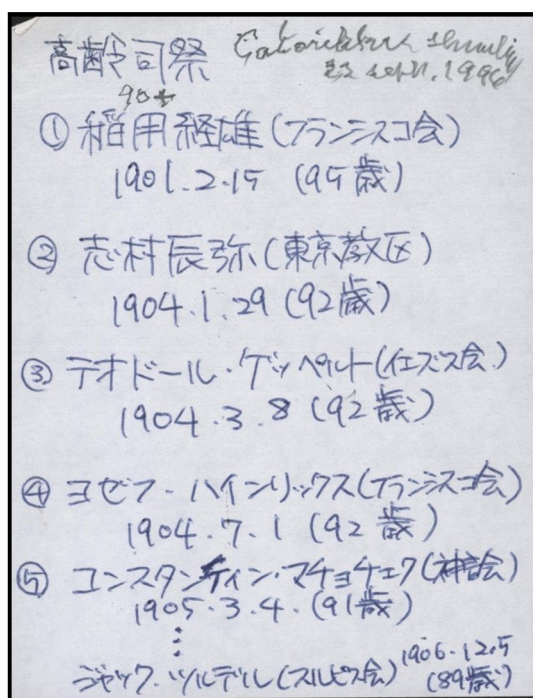 高齢司祭
22 sept. 1996
90才
① 稲用経雄(フランシスコ会)
1901.2.15 (95歳)
② 志村辰弥(東京教区)
1904.1.29 (92歳)
③ テオドール・ゲッペルト(イエズス会)
1904.3.8 (92歳)
④ ヨゼフ・ハインリックス(フランシスコ会)
1904.7.1 (92歳)
⑤ コンスタンティン・マチョチェク(神言会)
1905.3.4. (91歳)
ジャック・ツルデル(スルピス会) 1906.12.5
(89歳)